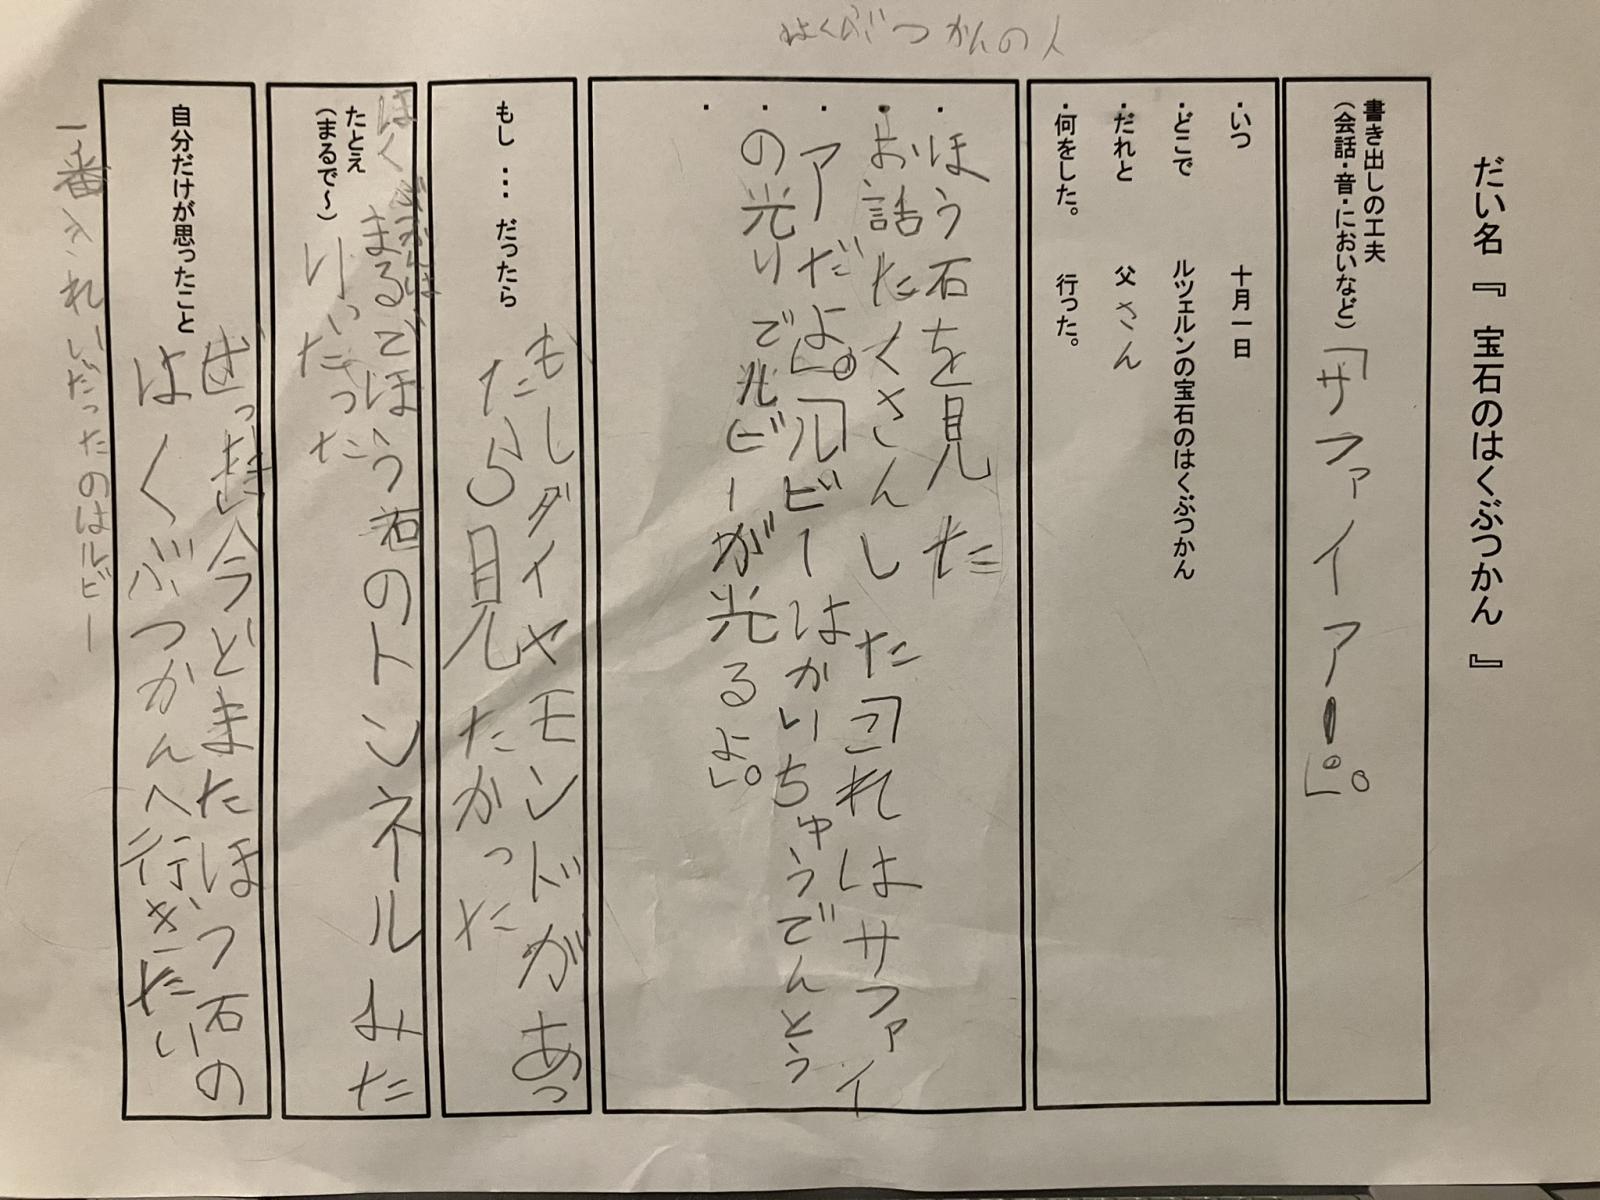 はくぶつかんの人
だい名『 宝石のはくぶつかん 』
書き出しの工夫
(会話・音・においなど)
「サファイアー。」。
・いつ 十月一日
・どこで ルツェルンの宝石のはくぶつかん
・だれと 父さん
・何をした。 行った。
・ほう石を見た
・お話たくさんした「これはサファイ
・アだよ。」「ルビーはかいちゅうでんとう
・の光りでルビーが光るよ」。
・
もし … だったら
もしダイヤモンドがあっ
たら見たかった
たとえ
(まるで~)
はくぶつかんは
まるでほう石のトンネルみた
いだった
自分だけが思ったこと
ぜったい今どまたほう石の
はくぶつかんへ行ぎたい
一番きれいだったのはルビー